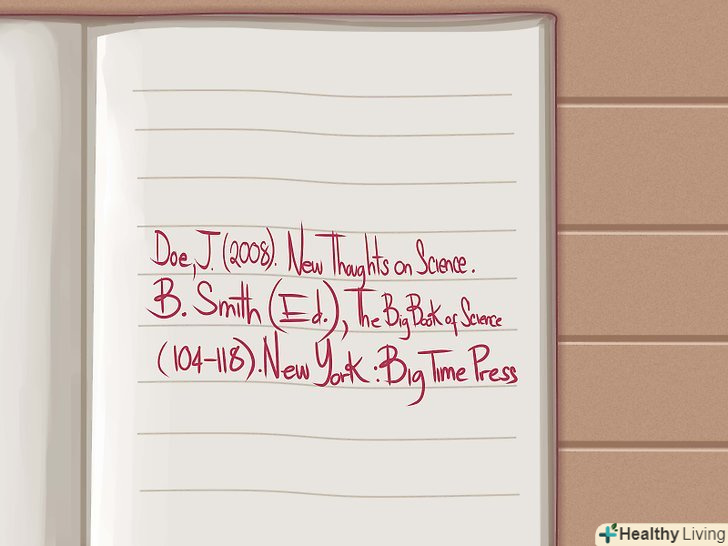 Doe, J. (2008). New Thoughts on Science.
B. Smith (Ed.), The Big Book of Science
(104-118). New York: Big Time Press
Healthy Living